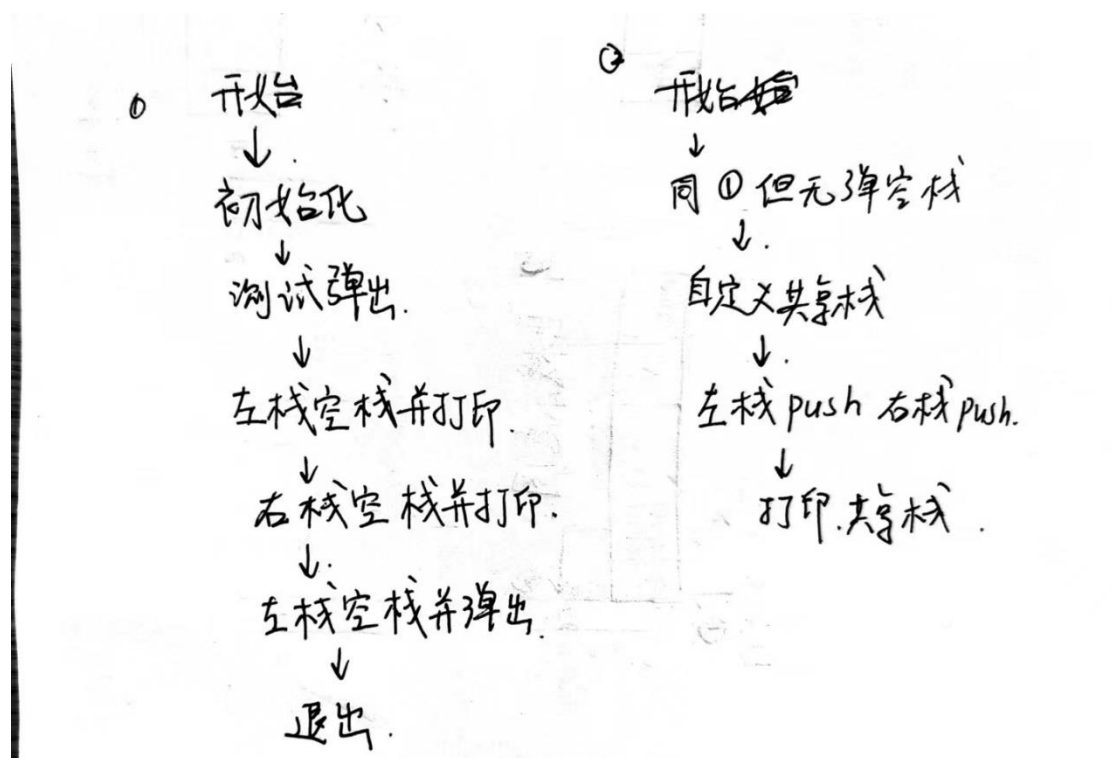 ①
开始
↓
初始化
↓
测试弹出.
↓
左栈空栈并打印.
↓
右栈空栈并打印.
↓
左栈空栈并弹出.
↓
退出.
②
开始
↓
同①但无弹空栈
↓
自定义共享栈
↓
左栈push 右栈push.
↓
打印.共享栈.